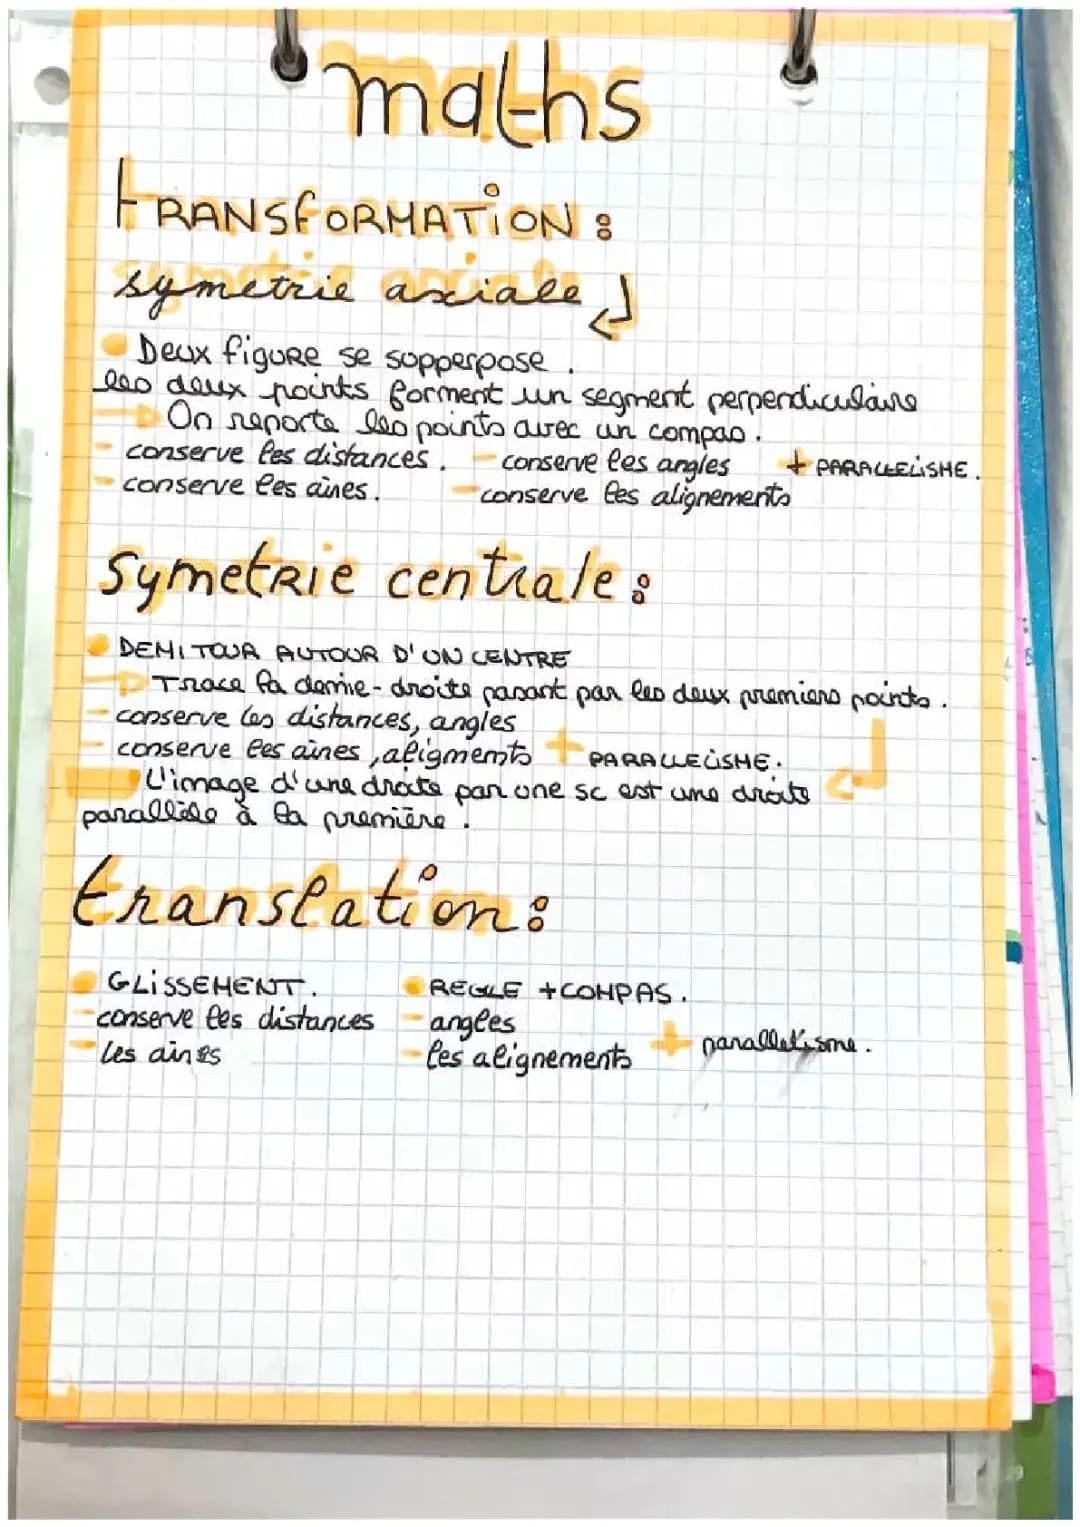 maths
tRANSfORMATiON :
symetrie axiale
Deux figure se supperpose.
les deux points forment un segment perpendiculaire
On reporte les points avec un compas.
conserve les distances. - conserve les angles + PARALLELiSME.
- conserve les aires. - conserve les alignements
SymetRie centrale :
DEMI TOUR AUTOUR D'UN CENTRE
Trace la demie-droite passant par les deux premiers points.
- conserve les distances, angles
- conserve les aires, aligments + PARALLELiSME.
L'image d'une droite par une sc est une droite
parallèle à la première.
translation :
GLiSSEMENT. REGLE + COMPAS.
- conserve les distances - angles
- les aires - les alignements + parallelisme.